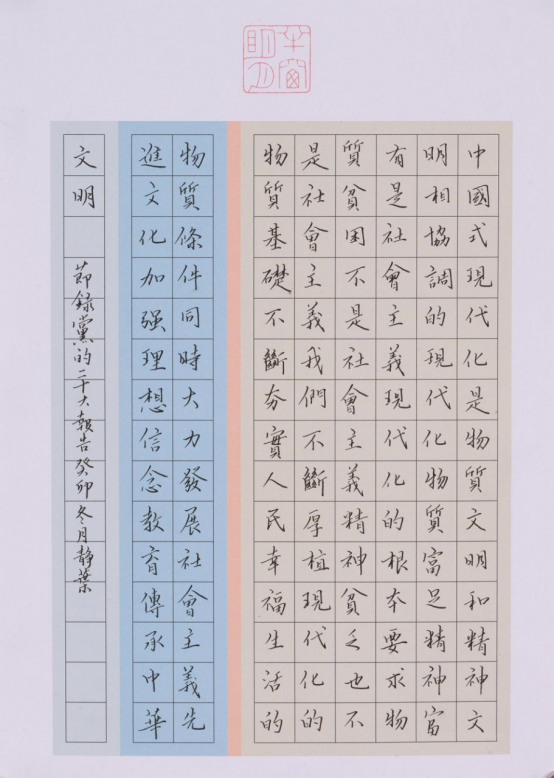 半窗明月
中國式現代化是物質文明和精神文
明相協調的現代化物質富足精神富
有是社會主義現代化的根本要求物
質貧困不是社會主義精神貧乏也不
是社會主義我們不斷厚植現代化的
物質基礎不斷夯實人民幸福生活的
物質條件同時大力發展社會主義先
進文化加强理想信念教育傳承中華
文明
節錄黨的二十大報告癸卯冬月靜葉